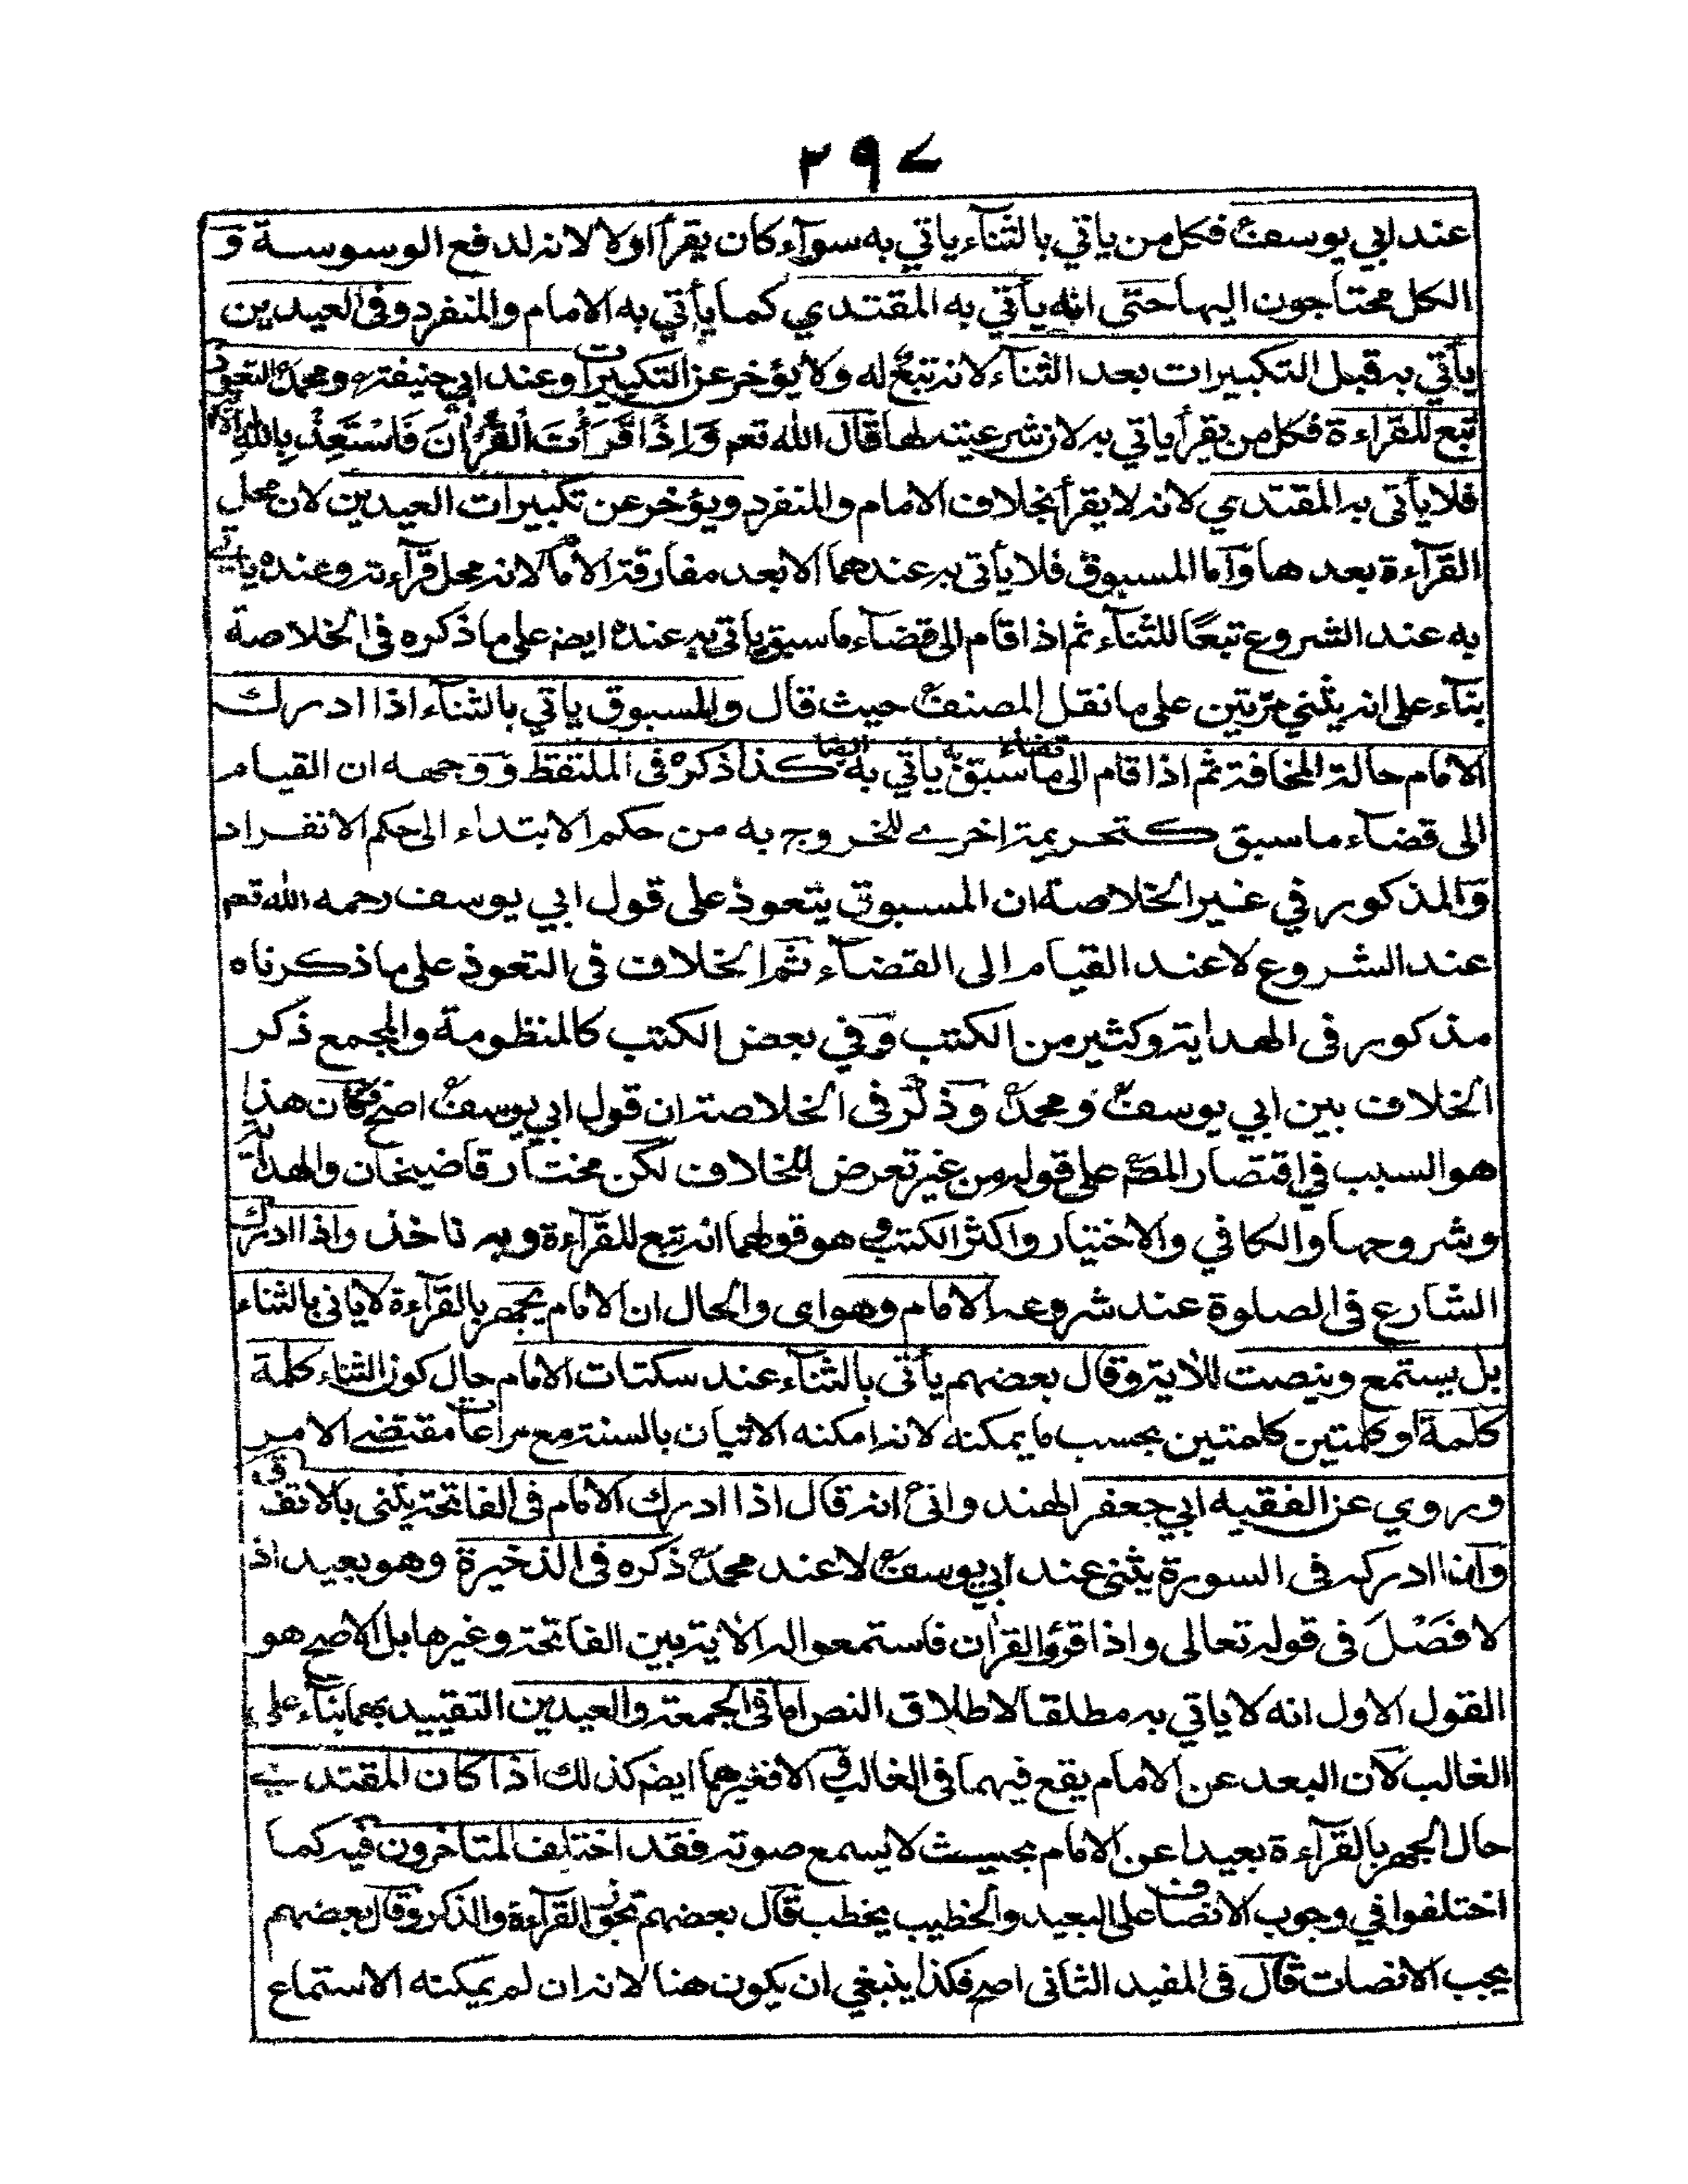 ٢٩٧
عند ابي يوسف فكل من ياتي بالثناء ياتي به سوآء كان يقرأ اولا لانه لدفع الوسوسة و
الكل محتاجون اليها حتى انه يأتي به المقتدي كما يأتي به الامام والمنفرد وفى العيدين
يأتي به قبل التكبيرات بعد الثناء لانه تبع له ولا يؤخر عن التكبيرات وعند ابي حنيفة ومحمد التعوذ
تبع للقراءة فكل من يقرأ ياتي به لان شرعيته لها قال الله تعم وَاِذَا قَرَأْتَ الْقُرْاٰنَ فَاسْتَعِذْ بِاللّٰهِ الآية
فلا يأتى به المقتدي لانه لا يقرأ بخلاف الامام والمنفرد ويؤخر عن تكبيرات العيدين لان محل
القرآءة بعدها وآما المسبوق فلا يأتى به عندهما الا بعد مفارقة الامام لانه محل قرآءته وعنده ياتي
به عند الشروع تبعًا للثنآء ثم اذا قام الى قضآء ما سبق ياتى به عنده ايضم على ما ذكره فى الخلاصة
بنآء على انه يثني مرّتين على ما نقل المصنف حيث قال والمسبوق ياتي بالثنآء اذا ادرك
الامام حالة المخافتة ثم اذا قام الى قضاء ما سبق به ياتي به ايضا كذا ذكره فى الملتقط ووجهه ان القيام
الى قضآء ما سبق كتحريمة اخرى للخروج به من حكم الابتداء الى حكم الانفراد
والمذكور في غير الخلاصة ان المسبوق يتعوذ على قول ابي يوسف رحمه الله تعم
عند الشروع لا عند القيام الى القضآء ثم الخلاف فى التعوذ على ما ذكرناه
مذكور فى الهداية وكثير من الكتب وفي بعض الكتب كالمنظومة والمجمع ذكر
الخلاف بين ابي يوسف ومحمد وذكر فى الخلاصة ان قول ابي يوسف اصح فكان هذا
هو السبب في اقتصار المصم على قوله من غير تعرض للخلاف لكن مختار قاضيخان والهداية
وشروحها والكافي والاختيار واكثر الكتب هو قولهما انه تبع للقرآءة وبه ناخذ واذا ادرك
الشارع فى الصلوة عند شروعه الامام وهو اى والحال ان الامام يجهر بالقرآءة لا ياتى بالثناء
بل يستمع وينصت للاية وقال بعضهم يأتى بالثنآء عند سكتات الامام حال كون الثناء كلمة
كلمة او كلمتين كلمتين بحسب ما يمكنه لانه امكنه الاتيان بالسنة مع مراعات مقتضى الامر
وروي عن الفقيه ابي جعفر الهندوانى انه قال اذا ادرك الامام فى الفاتحة يثنى بالاتفاق
وآن ادركه فى السورة يثنى عند ابي يوسف لا عند محمد ذكره فى الذخيرة وهو بعيد اذ
لا فَصْلَ فى قوله تعالى واذا قرؤ القرآن فاستمعوا له الاية بين الفاتحة وغيرها بل الاصح هو
القول الاول انه لا ياتي به مطلقا لاطلاق النص اما فى الجمعة والعيدين التقييد بهما بنآء على
الغالب لان البعد عن الامام يقع فيهما فى الغالب والا فغيرهما ايضم كذلك اذا كان المقتدي
حال الجهر بالقرآءة بعيدا عن الامام بحيث لا يسمع صوته فقد اختلف المتاخرون فيه كما
اختلفوا في وجوب الانصات على البعيد والخطيب يخطب قال بعضهم تجوز القرآءة والذكر وقال بعضهم
يجب الانصات قال فى المفيد الثانى اصح فكذا ينبغي ان يكون هنا لانه ان لم يمكنه الاستماع